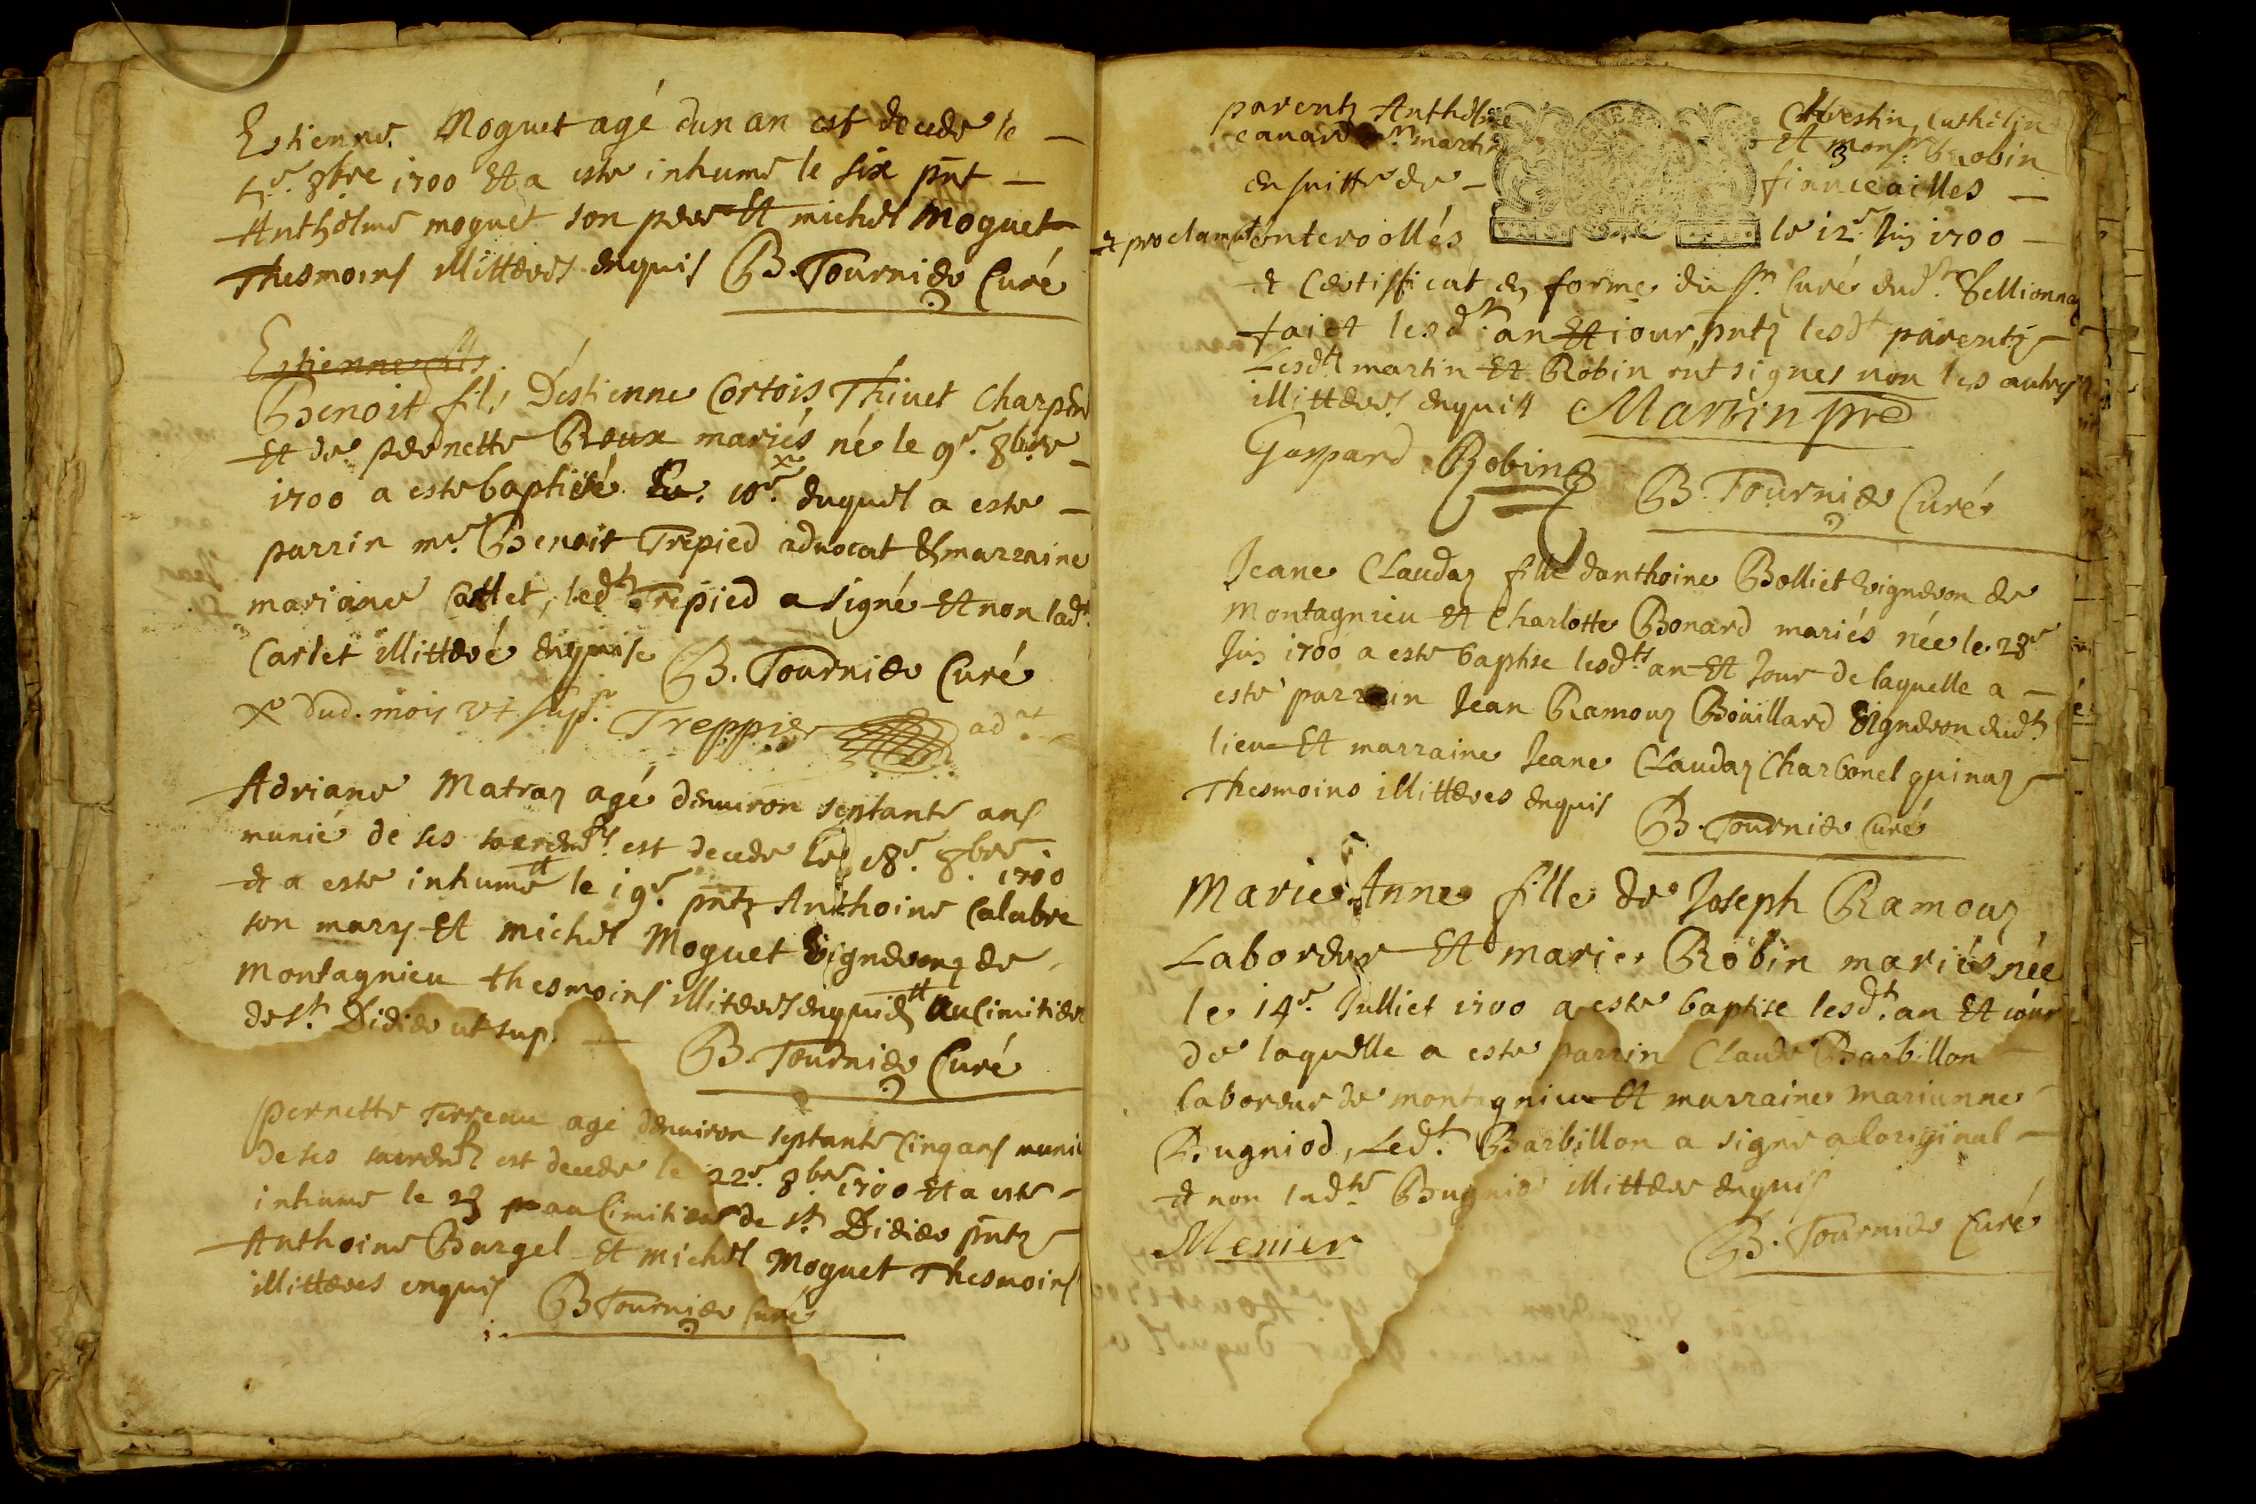 Estienne Moguet agé dun an est decede le
5e. 8bre 1700 Et a este inhumé le six pnt
Anthelme moguet son pere Et michel Moguet
Thesmoins illitteres enquis B. Tournier Curé
Estienne fils
Benoit fils D'estienne Cortois, Thiuet Charpen
Et de pernette Roux mariés né le 9e. 8bre
1700 a este baptisé le. 10e. x duquel a este
parrin mr. Benoit Trepied aduocat Et marraine
mariane Carlet, ledt. Trepied a signé Et non ladt.
Carlet illitteré enquise B. Tournier Curé
x dud. mois ut sup. Treppier adat
Adriane Matraz agé denuiron septante ans
munié de ses sacremts. est decede le 18e. 8bre. 1700
et a este inhumé le 19e. pntz Anthoine Calabre
son marry Et michel Moguet Vignerons de
Montagnieu thesmoins illiteres enquis au Cimitier
de st. Didier ut sup.
B. Tournier Curé
pernette Terreau agé denuiron septante Cinq ans munié
de ses sacremts est decede le 22e. 8bre 1700 Et a este
inhumé le 23 au Cimitier de st. Didier pntz
Anthoine Bargel Et michel Moguet Thesmoins
illitteres enquis B Tournier Curé
parentz Anthelme Chrestin, Cathelin
canard mr. martin Et monsr. Robin
en suitte de fianceailles
et proclamat Conterollés le 12e Juin 1700
et Certifficat en forme du sr. Curé dudt. Sellionnaz
faict lesdt. an Et iour, pntz lesdt parentz
Lesdt martin Et Robin ont signés non les autres
illitteres enquis Martin pre
Gaspard Robin
B. Tournier Curé
Jeane Claudaz fille danthoine Bolliet Vigneron de
Montagnieu Et Charlotte Bonard mariés née le 28e
Juin 1700 a este baptise lesdts. an Et Jour de laquelle a
este parrain Jean Ramouz Boüillard Vigneron dudt.
lieu Et marraine Jeane Claudaz Charbonel quinaz
Thesmoins illitteres enquis B. Tournier Curé
Marie Anne fille de Joseph Ramouz
Laboreur Et marie Robin mariés née
le 14e Julliet 1700 a este baptise lesdt. an Et iour
de laquelle a este parrin Claude Barbillon
laboreur de montagnieu Et marraine marianne
Bugniod, Ledt. Barbillon a signe a loriginal
et non ladte Bugniod illittere enquis
Menier B. Tournier Curé